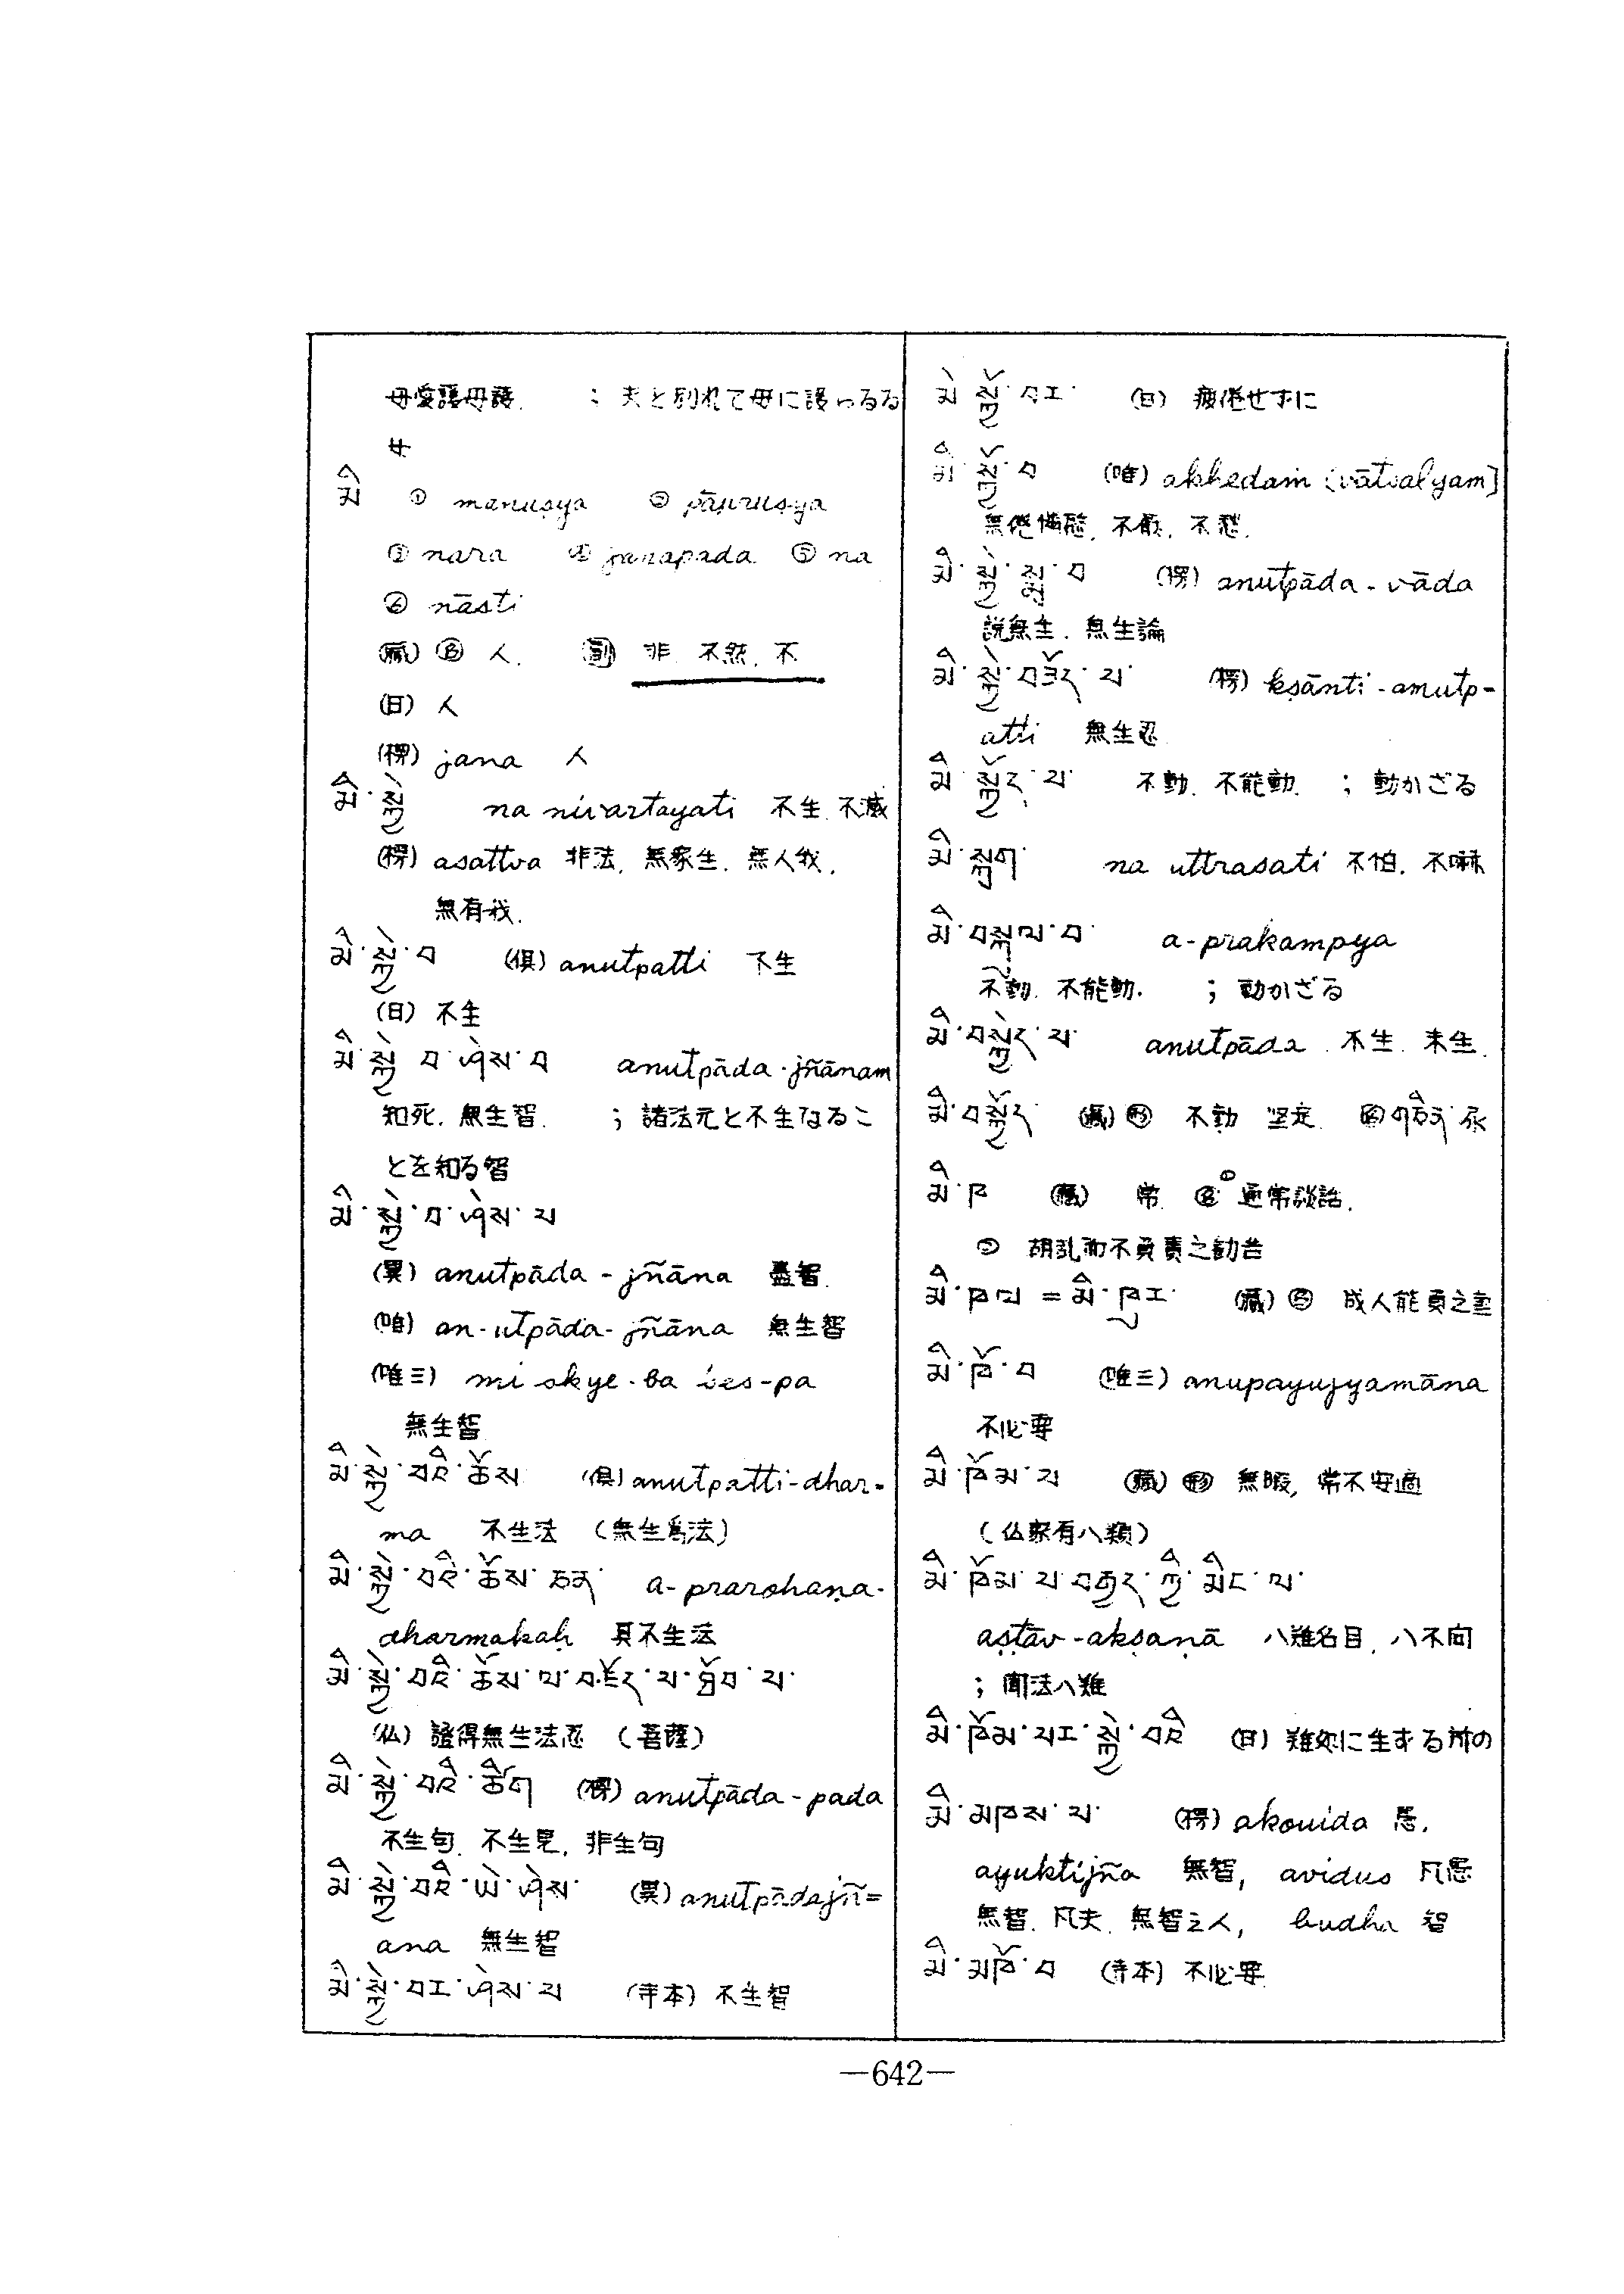 母愛護母護. ; 夫と別れて母に護らるる
女
མི ① manuṣya ② pāuruṣya
③ nara ④ janapada ⑤ na
⑥ nāsti
(藏) 名 人. 副 非. 不然. 不
(日) 人
(楞) jana 人
མི་སྐྱེ na nivartayati 不生. 不滅
(楞) asattva 非法. 無衆生. 無人我.
無有我.
མི་སྐྱེ་བ (俱) anutpatti 不生
(日) 不生
མི་སྐྱེ་བ་ཤེས་བ anutpāda-jñānam
知死. 無生智. ; 諸法元と不生なるこ
とを知る智
མི་སྐྱེ་བ་ཤེས་པ
(異) anutpāda-jñāna 盡智.
(唯) an-utpāda-jñāna 無生智
(唯三) mi skye-ba śes-pa
無生智
མི་སྐྱེ་བའི་ཆོས (俱) anutpatti-dhar-
ma 不生法 (無生爲法)
མི་སྐྱེ་བའི་ཆོས་ཅན་ a-prarohaṇa-
dharmakaḥ 具不生法
མི་སྐྱེ་བའི་ཆོས་ལ་བཟོད་པ་ཐོབ་པ་
(仏) 證得無生法忍 (菩薩)
མི་སྐྱེ་བའི་ཚིག (楞) anutpāda-pada
不生句. 不生見. 非生句
མི་སྐྱེ་བའི་ཡེ་ཤེས་ (異) anutpādajñ=
ana 無生智
མི་སྐྱེ་བར་ཤེས་པ (寺本) 不生智
མི་སྐྱོ་བར་ (日) 疲倦せずに
མི་སྐྱོ་བ (唯) akhedaṁ [vātsalyam]
無倦憐愍. 不厭. 不愁.
མི་སྐྱེ་སྨྲ་བ (楞) anutpāda-vāda
説無生. 無生論
མི་སྐྱེ་བཟོད་པ་ (楞) kṣānti-anutp-
atti 無生忍
མི་སྐྱོད་པ་ 不動. 不能動. ; 動かざる
མི་སྐྲག་ na uttrasati 不怕. 不嚇
མི་བསྐལ་བ་ a-prakampya
不動. 不能動. ; 動かざる
མི་བསྐྱེད་པ་ anutpāda. 不生. 未生.
མི་བསྐྱོད་ (藏) 形 不動 堅定.
མི་ཁ (藏) 常. 名 ① 通常談話.
② 胡乱而不負責之勧告
མི་ཁལ = མི་ཁུར་ (藏) 名 成人能負之
མི་ཁོ་བ (唯三) anupayujyamāna
不必要
མི་ཁོམ་པ (藏) 形 無暇, 常不安適
(仏家有八類)
མི་ཁོམ་པ་བརྒྱད་ཀྱི་མིང་ལ་
aṣṭāv-akṣaṇā 八難名目. 八不閑
; 聞法八難
མི་ཁོམ་པར་སྐྱེ་བའི (日) 難処に生ずる所の
མི་མཁས་པ་ (楞) akovida 愚.
ayuktijña 無智, avidus 凡愚
無智. 凡夫. 無智之人, budha 智
མི་མཁོ་བ (寺本) 不必要
—642—